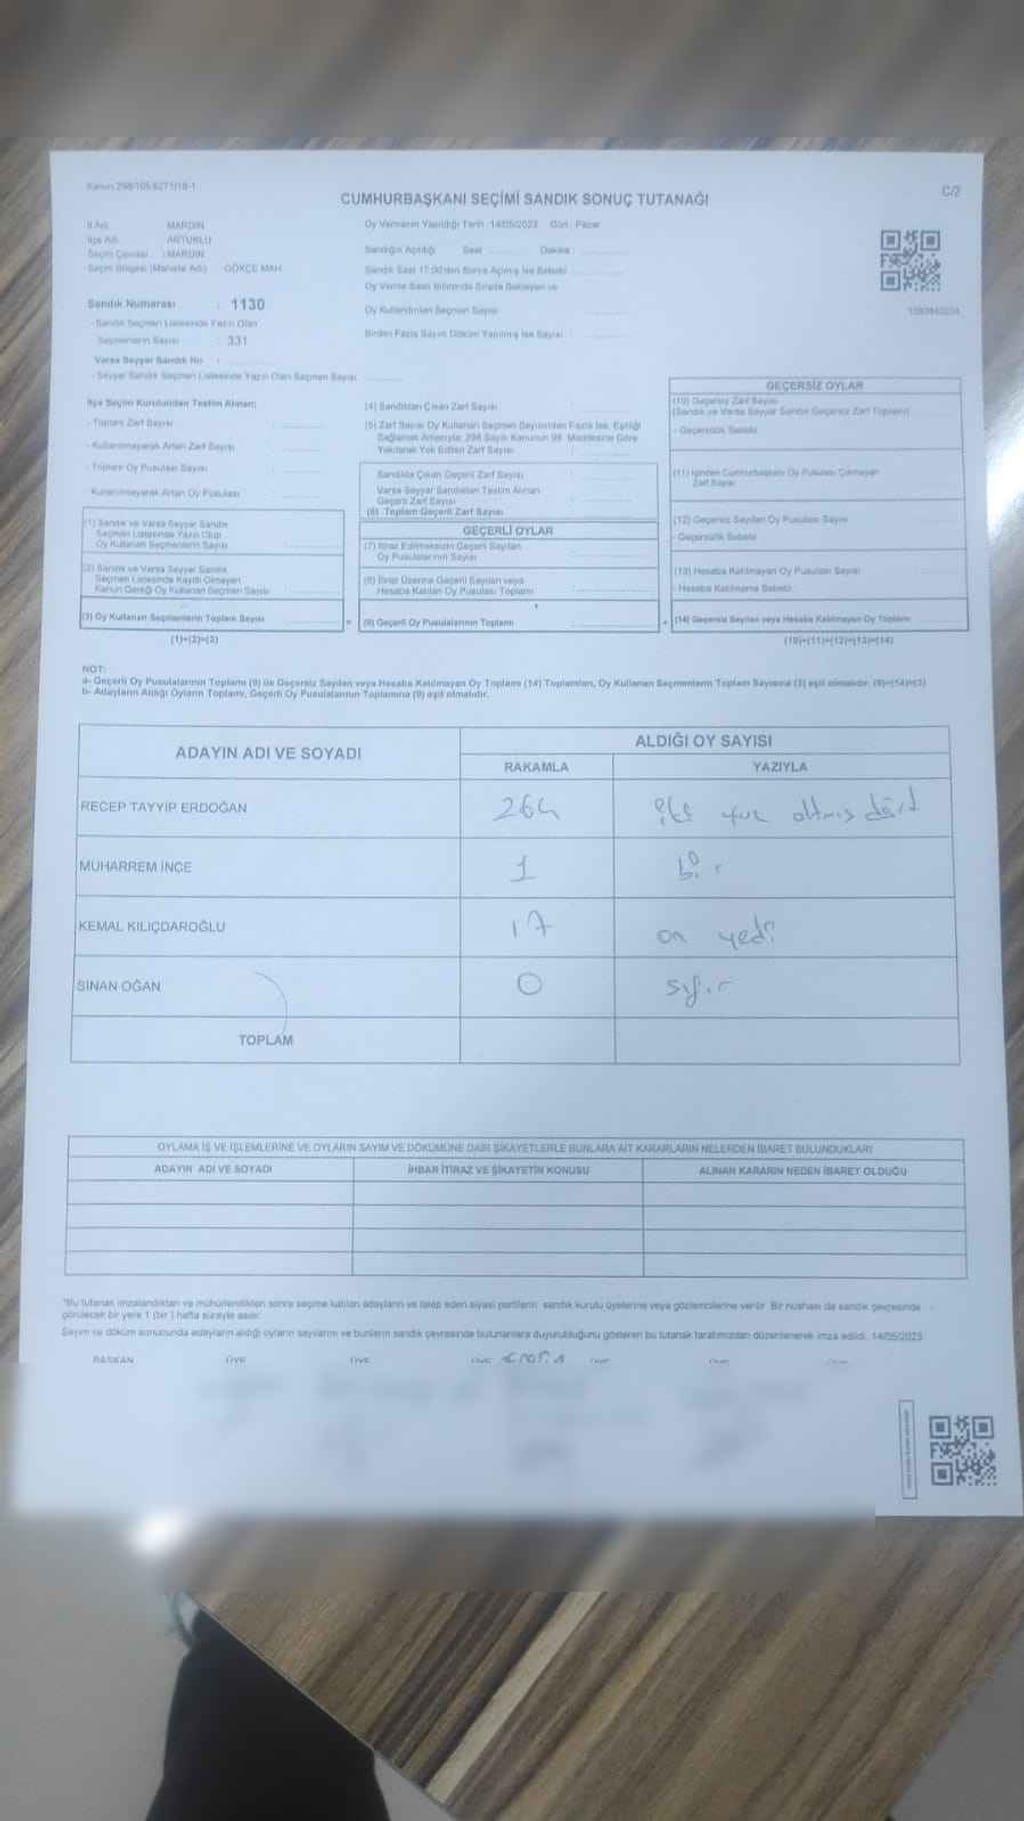 Kanun 298/105 6271/18-1
C/2
CUMHURBAŞKANI SEÇİMİ SANDIK SONUÇ TUTANAĞI
İl Adı : MARDİN
İlçe Adı : ARTUKLU
Seçim Çevresi : MARDİN
Seçim Bölgesi (Mahalle Adı) : GÖKÇE MAH
Sandık Numarası : 1130
- Sandık Seçmen Listesinde Yazılı Olan
Seçmenlerin Sayısı : 331
Varsa Seyyar Sandık No :
- Seyyar Sandık Seçmen Listesinde Yazılı Olan Seçmen Sayısı
Oy Vermenin Yapıldığı Tarih : 14/05/2023 Gün : Pazar
Sandığın Açıldığı Saat Dakika :
Sandık Saat 17.00'den Sonra Açılmış İse Sebebi
Oy Verme Saati Bitiminde Sırada Bekleyen ve
Oy Kullandırılan Seçmen Sayısı
Birden Fazla Sayım Döküm Yapılmış İse Sayısı
İlçe Seçim Kurulundan Teslim Alınan;
- Toplam Zarf Sayısı
- Kullanılmayarak Artan Zarf Sayısı
- Toplam Oy Pusulası Sayısı
- Kullanılmayarak Artan Oy Pusulası
(1) Sandık ve Varsa Seyyar Sandık
Seçmen Listesinde Yazılı Olup
Oy Kullanan Seçmenlerin Sayısı
(2) Sandık ve Varsa Seyyar Sandık
Seçmen Listesinde Kayıtlı Olmayan
Kanun Gereği Oy Kullanan Seçmen Sayısı
(3) Oy Kullanan Seçmenlerin Toplam Sayısı
(1)+(2)=(3)
(4) Sandıktan Çıkan Zarf Sayısı
(5) Zarf Sayısı Oy Kullanan Seçmen Sayısından Fazla İse, Eşitliği
Sağlamak Amacıyla; 298 Sayılı Kanunun 98. Maddesine Göre
Yakılarak Yok Edilen Zarf Sayısı
Sandıkta Çıkan Geçerli Zarf Sayısı
Varsa Seyyar Sandıktan Teslim Alınan
Geçerli Zarf Sayısı
(6) Toplam Geçerli Zarf Sayısı
GEÇERLİ OYLAR
(7) İtiraz Edilmeksizin Geçerli Sayılan
Oy Pusulalarının Sayısı
(8) İtiraz Üzerine Geçerli Sayılan veya
Hesaba Katılan Oy Pusulası Toplamı
(9) Geçerli Oy Pusulalarının Toplamı
GEÇERSİZ OYLAR
(10) Geçersiz Zarf Sayısı
(Sandık ve Varsa Seyyar Sandık Geçersiz Zarf Toplamı)
- Geçersizlik Sebebi
(11) İçinden Cumhurbaşkanı Oy Pusulası Çıkmayan
Zarf Sayısı
(12) Geçersiz Sayılan Oy Pusulası Sayısı
- Geçersizlik Sebebi
(13) Hesaba Katılmayan Oy Pusulası Sayısı
- Hesaba Katılmama Sebebi
(14) Geçersiz Sayılan veya Hesaba Katılmayan Oy Toplamı
(10)+(11)+(12)+(13)=(14)
NOT:
a- Geçerli Oy Pusulalarının Toplamı (9) ile Geçersiz Sayılan veya Hesaba Katılmayan Oy Toplamı (14) Toplamları, Oy Kullanan Seçmenlerin Toplam Sayısına (3) eşit olmalıdır. (9)+(14)=(3)
b- Adayların Aldığı Oyların Toplamı, Geçerli Oy Pusulalarının Toplamına (9) eşit olmalıdır.
ADAYIN ADI VE SOYADI
ALDIĞI OY SAYISI
RAKAMLA YAZIYLA
RECEP TAYYİP ERDOĞAN 264 iki yuz altmış dört
MUHARREM İNCE 1 bir
KEMAL KILIÇDAROĞLU 17 on yedi
SİNAN OĞAN 0 sıfır
TOPLAM
OYLAMA İŞ VE İŞLEMLERİNE VE OYLARIN SAYIM VE DÖKÜMÜNE DAİR ŞİKAYETLERLE BUNLARA AİT KARARLARIN NELERDEN İBARET BULUNDUKLARI
ADAYIN ADI VE SOYADI İHBAR İTİRAZ VE ŞİKAYETİN KONUSU ALINAN KARARIN NEDEN İBARET OLDUĞU
"Bu tutanak imzalandıktan ve mühürlendikten sonra seçime katılan adayların ve talep eden siyasi partilerin sandık kurulu üyelerine veya gözlemcilerine verilir. Bir nüshası da sandık çevresinde
görülecek bir yere 1 (bir) hafta süreyle asılır.
Sayım ve döküm sonucunda adayların aldığı oyların sayılarını ve bunların sandık çevresinde bulunanlara duyurulduğunu gösteren bu tutanak tarafımızdan düzenlenerek imza edildi. 14/05/2023
BAŞKAN ÜYE ÜYE ÜYE ÜYE